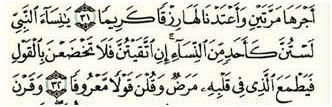 أَجْرَهَا مَرَّتَيْنِ وَأَعْتَدْنَا لَهَا رِزْقًا كَرِيمًا ٣١ يَٰنِسَآءَ ٱلنَّبِىِّ
لَسْتُنَّ كَأَحَدٍ مِّنَ ٱلنِّسَآءِ إِنِ ٱتَّقَيْتُنَّ فَلَا تَخْضَعْنَ بِٱلْقَوْلِ
فَيَطْمَعَ ٱلَّذِى فِى قَلْبِهِۦ مَرَضٌ وَقُلْنَ قَوْلًا مَّعْرُوفًا ٣٢ وَقَرْنَ